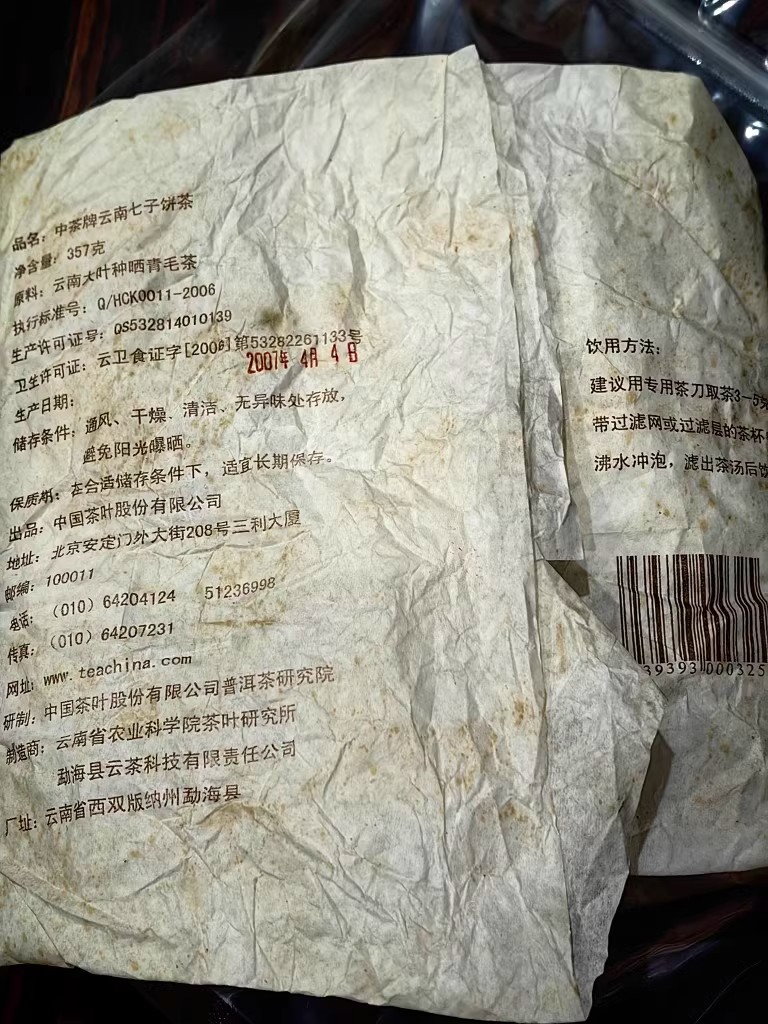 品名：中茶牌云南七子饼茶
净含量：357克
原料：云南大叶种晒青毛茶
执行标准号：Q/HCK0011-2006
生产许可证号：QS532814010139
卫生许可证：云卫食证字[200 ]第53282261133号
生产日期：
2007年 4月 4日
储存条件：通风、干燥、清洁、无异味处存放，
避免阳光曝晒。
保质期：在合适储存条件下，适宜长期保存。
出品：中国茶叶股份有限公司
地址：北京安定门外大街208号三利大厦
邮编：100011
电话：（010）64204124 51236998
传真：（010）64207231
网址：www.teachina.com
研制：中国茶叶股份有限公司普洱茶研究院
制造商：云南省农业科学院茶叶研究所
勐海县云茶科技有限责任公司
厂址：云南省西双版纳州勐海县
饮用方法：
建议用专用茶刀取茶3-5
带过滤网或过滤层的茶杯
沸水冲泡，滤出茶汤后饮
39393 000325